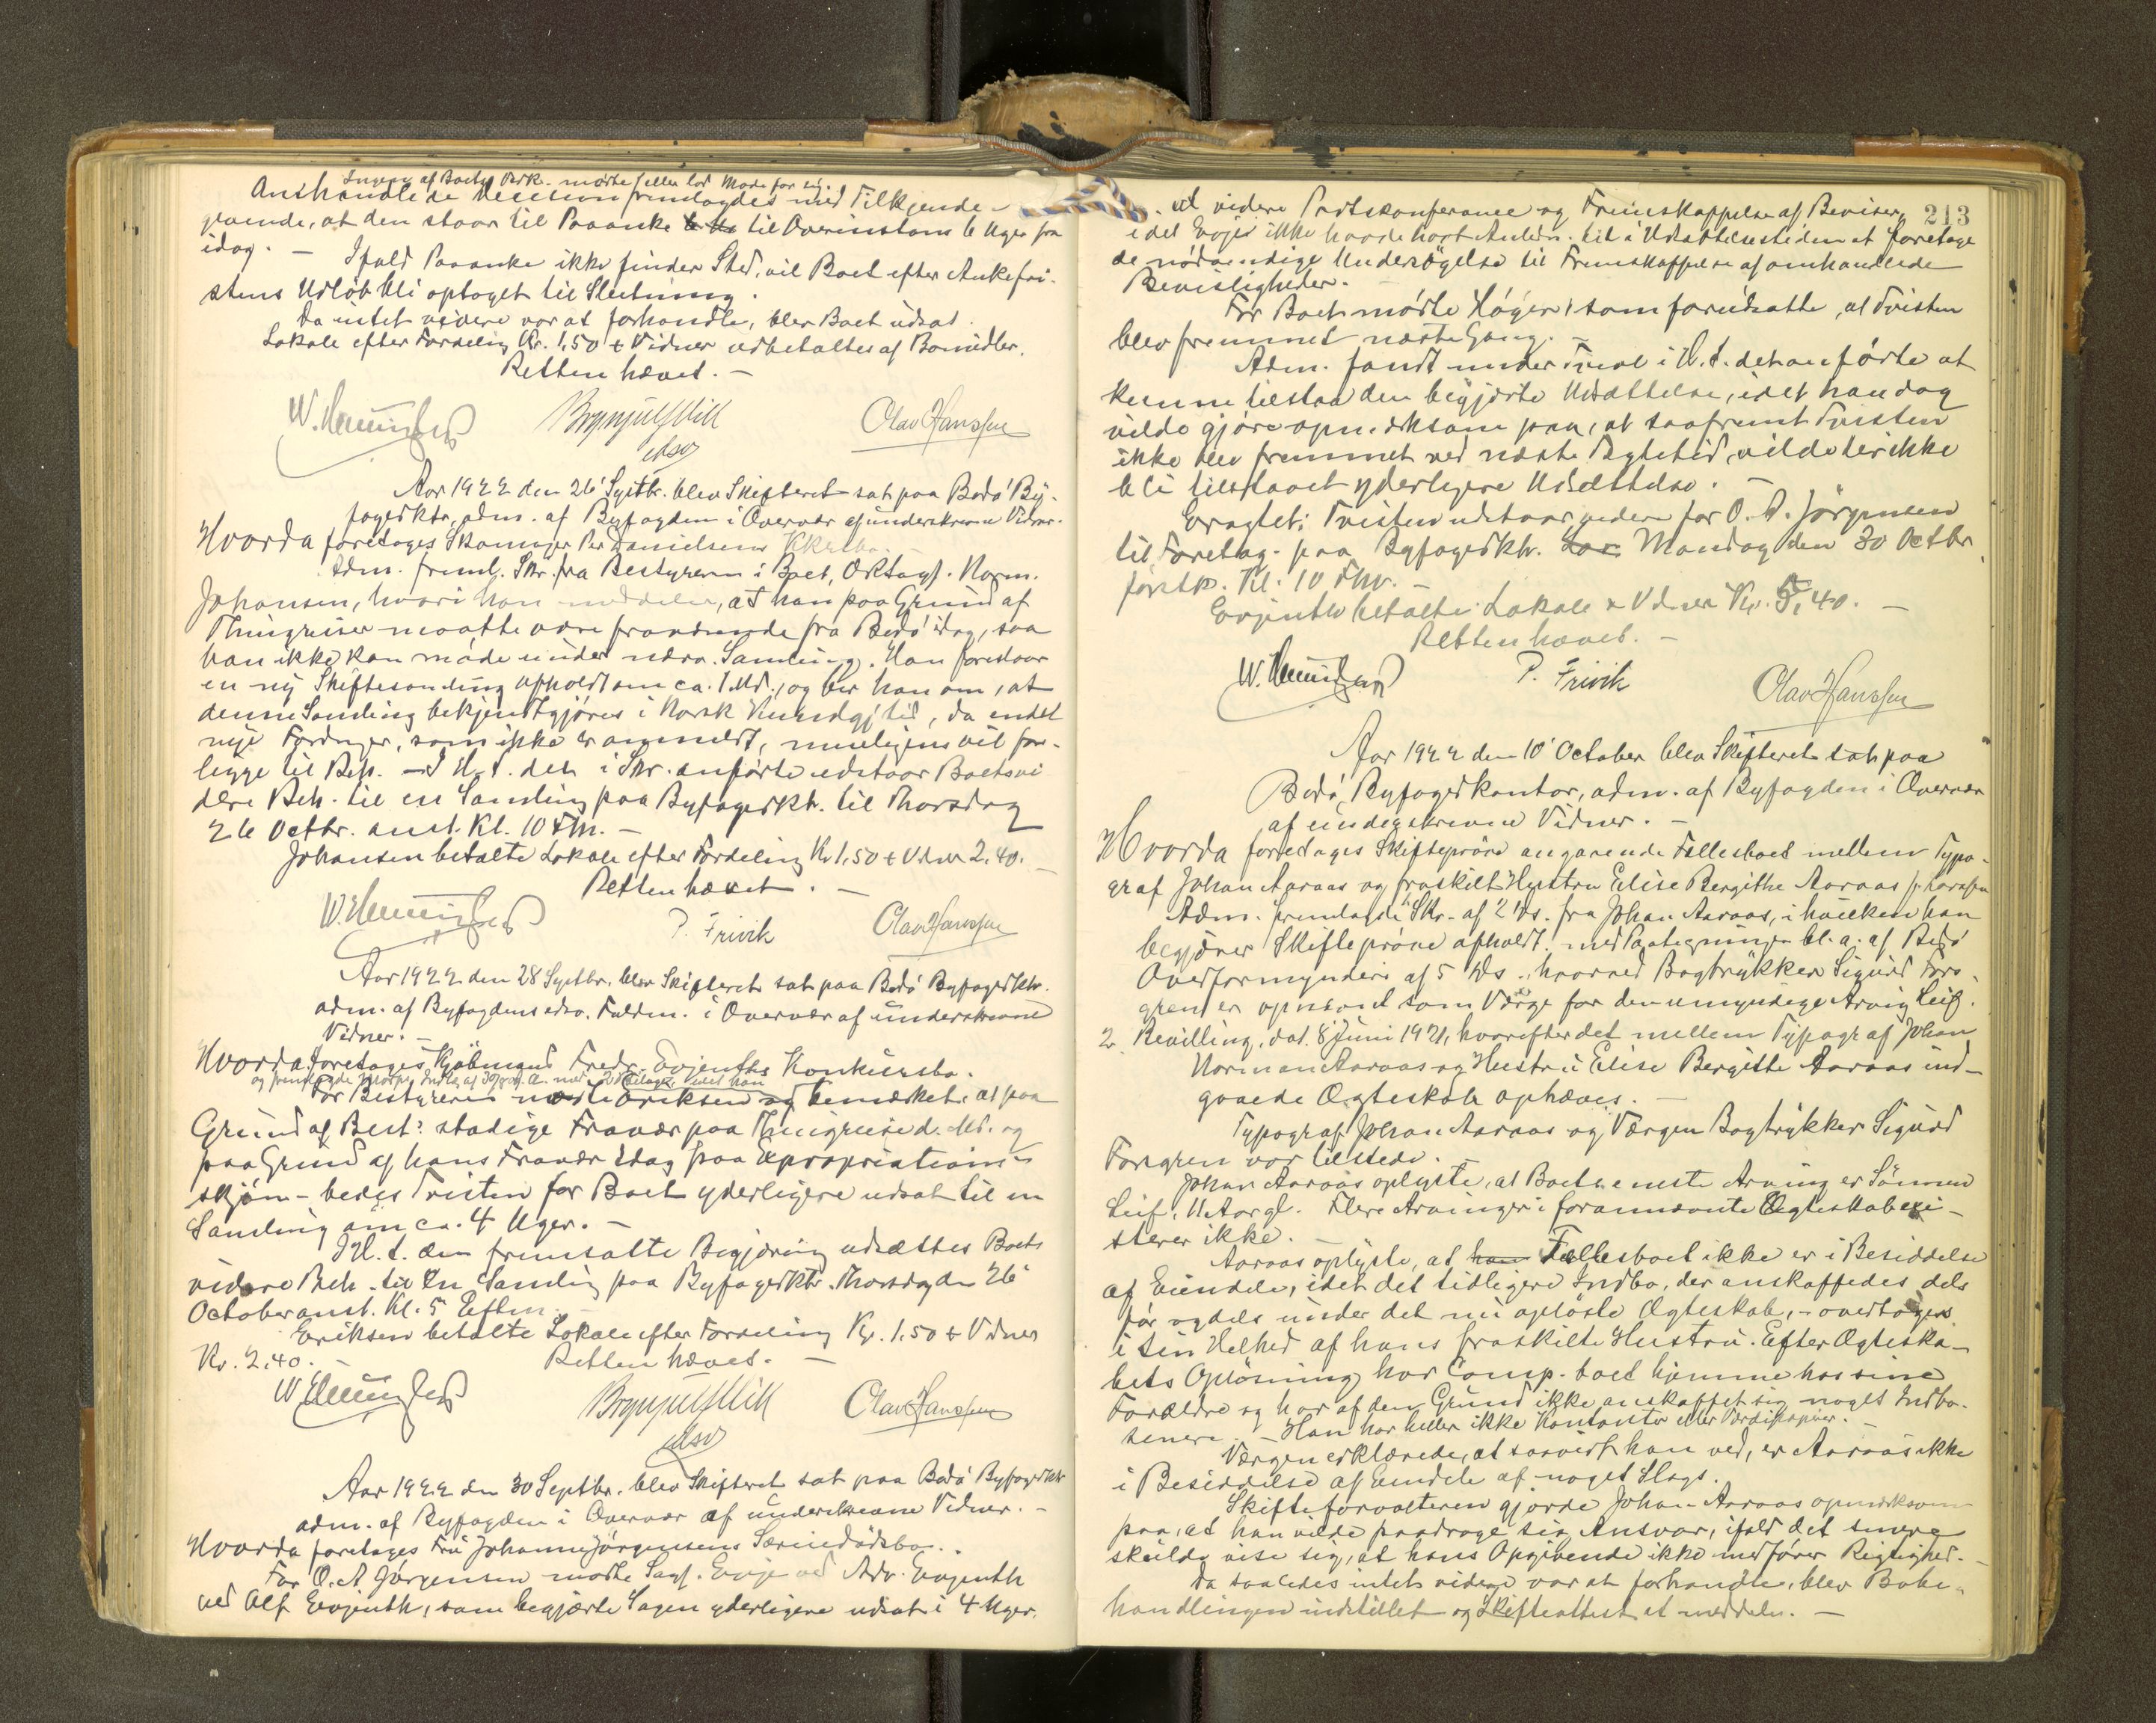 Ingen af Boets Vedk. mødte eller lod Møde for sig.
Anchændte de Decision fremlagdes med Tilkjende-
givende, at den staar til Paaanke til Overinstans 6 Uger fra
idag. — Ifald Paaanke ikke finder Sted, vil Boet efter Ankefri-
stens Udløb bli optaget til Slutning.
Da intet videre var at forhandle, blev Boet udsat.
Lokale efter Fordeling Kr. 1,50 + Vidner udbetaltes af Bomidler.
Retten hævet. —
Olav Hanssen
Aar 1922 den 26' Septbr. blev Skifteret sat paa Bodø By-
fogedktr, adm. af Byfogden i Overvær af underskrevne Vidner.
Hvorda foretoges Skomager Per Danielsens Kkrsbo. —
Adm. freml. Skr. fra Bestyreren i Boet, Orsagf. Norm.
Johansen, hvori han meddeler, at han paa Grund af
Thingreiser maatte være fraværende fra Bodø idag, saa
han ikke kan møde under nærv. Samling. Han foreslaar
en ny Skiftesamling afholdt om ca. 1 Md., og ber han om, at
denne Samling bekjendtgjøres i Norsk Kundgj.tid., da endel
nye Fordringer, som ikke er anmeldt, muligens vil fore-
ligge til Beh. — I H. t. det i Skr. anførte udstaar Boets vi
dere Beh. til en Samling paa Byfogedktr. til Thorsdag
26 Octbr. anst. Kl. 10 Fm. —
Johansen betalte Lokale efter Fordeling Kr 1,50 + Vidner 2.40. —
Retten hævet. —
P. Frivik
Olav Hanssen
Aar 1922 den 28 Septbr. blev Skifteret sat paa Bodø Byfogedktr.
adm. af Byfogdens edsv. Fuldm. i Overvær af underskrevne
Vidner. —
Hvorda foretoges Kjøbmand Fredr. Evjenths Konkursbo.
For Bestyreren mødte Eriksen og bemærket at paa
Grund af Best: stadige Fravær paa Thingreise d. Md. og
paa Grund af hans Fravær idag paa Expropriations-
skjøn — bedes Tvisten for Boet yderligere udsat til en
Samling om ca. 4 Uger. —
I H. t. den fremsatte Begjæring udsættes Boets
videre Beh. til en Samling paa Byfogedktr. Thorsdag den 26'
October anst. Kl. 5 Eftm. —
Eriksen betalte Lokale efter Fordeling Kr. 1.50 + Vidner
Kr. 2,40. — Retten hævet. —
Olav Hanssen
Aar 1922 den 30 Septbr. blev Skifteret sat paa Bodø Byfogedktr
adm. af Byfogden i Overvær af underskrevne Vidner. —
Hvorda foretoges Fru Johanne Jørgensens Særiedødsbo.
For O. A Jørgensen mødte Sagf. Evje ved Adv. Evjenth
ved Alf Evjenth, som begjærte Sagen yderligere udsat i 4 Uger,
213
til videre Partskonferance og Fremskaffelse af Beviser,
idet Evje ikke havde havt Anledn. til i Udsættelsestiden at foretage
de nødvendige Undersøgelse til Fremskaffelse af omhandlede
Bevisligheder.
For Boet mødte Høyer, som forudsatte, at Tvisten
blev fremmet næste Gang. —
Adm. fandt under Tvivl i H. t. det anførte at
kunne tilstaa den begjærte Udsættelse, idet han dog
vilde gjøre opmærksom paa, at saafremt Tvisten
ikke blev fremmet ved næste Bytetid, vilde der ikke
bli tilstaaet yderligere Udsættelse. —
Eragtet: Tvisten udstaar videre for O. A. Jørgensen
til Foretag. paa Byfogedktr. Mandag den 30 Octbr
førstk. Kl. 10 Fm. —
Evjenth betalte Lokale & Vidner Kr. 5,40. —
Retten hævet. —
P. Frivik
Olav Hanssen
Aar 1922 den 10' October blev Skifteret sat paa
Bodø Byfogedkontor, adm. af Byfogden i Overvær
af undegskrevne Vidner. —
Hvorda foretages Skifteprøve angaaende Fællesboet mellem Typo-
graf Johan Aaraas og fraskilt Hustru Elise Bergithe Aaraas f. Larssen
Adm. fremlagde Skr. af 2' ds. fra Johan Aaraas, i hvilken han
begjærer Skifteprøve afholdt. med Paategninger bl. a. af Bodø
Overformynderi af 5' ds., hvorved Bogtrykker Sigurd Fors-
gren er opnævnt som Værge for den umyndige Arving Leif.
2. Bevilling, dat. 8' Juni 1921, hvorefter det mellem Typograf Johan
Norman Aaraas og Hustru Elise Bergitte Aaraas ind-
gaaede Ægteskab ophæves. —
Typograf Johan Aaraas og Værgen Bogtrykker Sigurd
Forsgren var tilstede. —
Johan Aaraas oplyste, at Boets eneste Arving er Sønnen
Leif, 11 Aar gl. Flere Arvinger i forannævnte Ægteskab exi-
sterer ikke. —
Aaraas oplyste, at han Fællesboet ikke er i Besiddelse
af Eiendele, idet det tidligere Indbo, der anskaffedes dels
før og dels under det nu opløste Ægteskab, — overtoges
i sin Helhed af hans fraskilte Hustru. Efter Ægteska-
bets Opløsning har Comp. boet hjemme hos sine
Forældre og har af den Grund ikke anskaffet sig noget Indbo
senere. — Han har heller ikke Kontanter eller Værdipapirer. —
Værgen erklærede, at saavidt han ved, er Aaraas ikke
i Besiddelse af Eiendele af noget Slags.
Skifteforvalteren gjorde Johan Aaraas opmærksom
paa, at han vilde paadrage sig Ansvar, ifald det senere
skulde vise sig, at hans Opgivende ikke medfører Rigtighed. —
Da saaledes intet videre var at forhandle, blev Bobe-
handlingen indstillet og Skifteattest at meddele. —